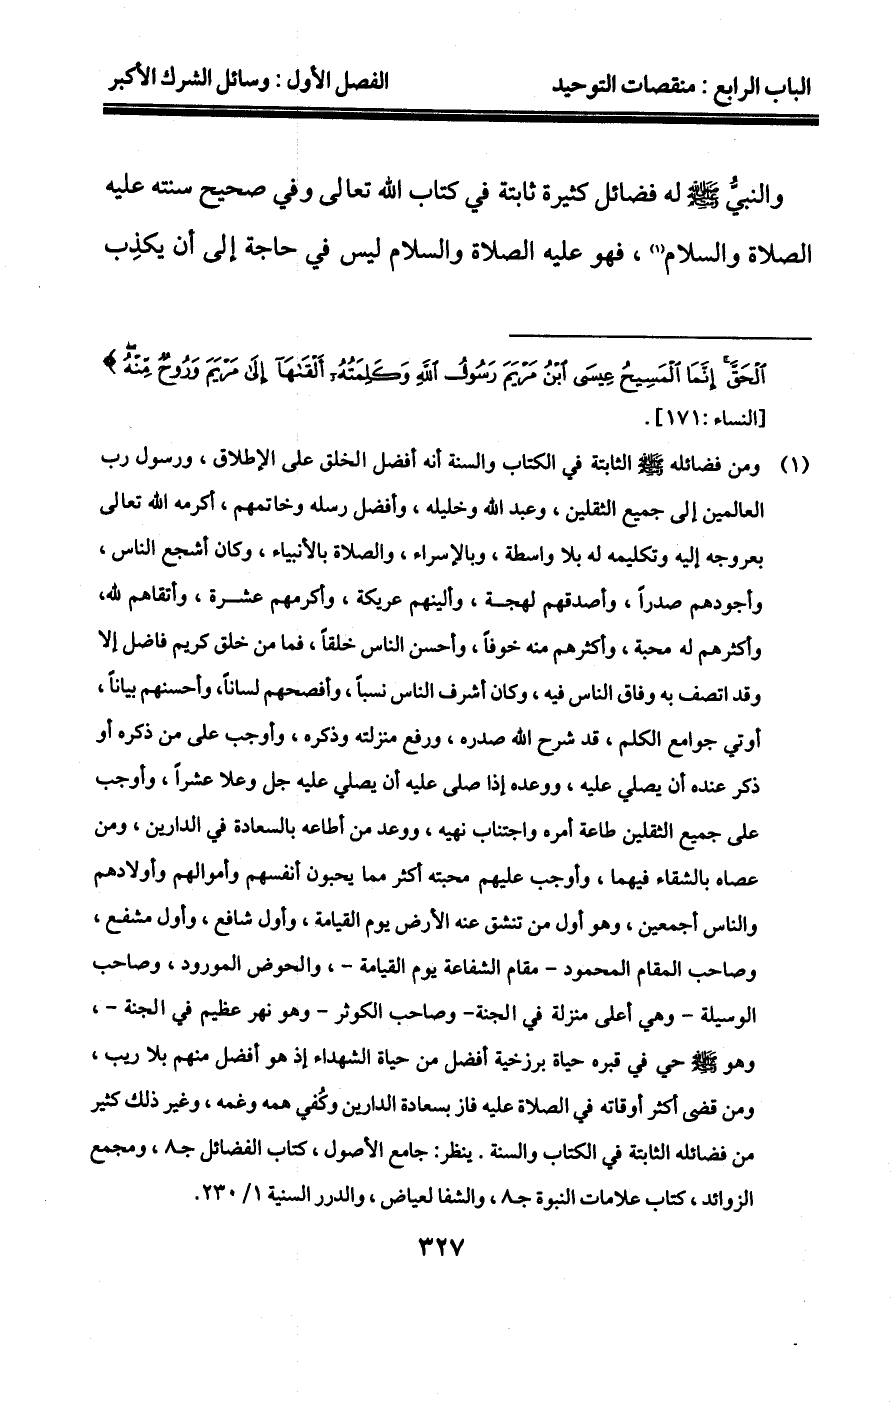 الباب الرابع : منقصات التوحيد الفصل الأول : وسائل الشرك الأكبر
والنبيُّ ﷺ له فضائل كثيرة ثابتة في كتاب الله تعالى وفي صحيح سنته عليه
الصلاة والسلام(١) ، فهو عليه الصلاة والسلام ليس في حاجة إلى أن يكذِب
ٱلْحَقَّ ۚ إِنَّمَا ٱلْمَسِيحُ عِيسَى ٱبْنُ مَرْيَمَ رَسُولُ ٱللَّهِ وَكَلِمَتُهُۥٓ أَلْقَىٰهَآ إِلَىٰ مَرْيَمَ وَرُوحٌ مِّنْهُ ۖ﴾
[النساء : ١٧١] .
(١) ومن فضائله ﷺ الثابتة في الكتاب والسنة أنه أفضل الخلق على الإطلاق ، ورسول رب
العالمين إلى جميع الثقلين ، وعبد الله وخليله ، وأفضل رسله وخاتمهم ، أكرمه الله تعالى
بعروجه إليه وتكليمه له بلا واسطة ، وبالإسراء ، والصلاة بالأنبياء ، وكان أشجع الناس ،
وأجودهم صدراً ، وأصدقهم لهجـة ، وألينهم عريكة ، وأكرمهم عشـرة ، وأتقاهم لله،
وأكثرهم له محبة ، وأكثرهم منه خوفاً ، وأحسن الناس خلقاً ، فما من خلق كريم فاضل إلا
وقد اتصف به وفاق الناس فيه ، وكان أشرف الناس نسباً ، وأفصحهم لساناً، وأحسنهم بياناً ،
أوتي جوامع الكلم ، قد شرح الله صدره ، ورفع منزلته وذكره ، وأوجب على من ذكره أو
ذكر عنده أن يصلي عليه ، ووعده إذا صلى عليه أن يصلي عليه جل وعلا عشراً ، وأوجب
على جميع الثقلين طاعة أمره واجتناب نهيه ، ووعد من أطاعه بالسعادة في الدارين ، ومن
عصاه بالشقاء فيهما ، وأوجب عليهم محبته أكثر مما يحبون أنفسهم وأموالهم وأولادهم
والناس أجمعين ، وهو أول من تنشق عنه الأرض يوم القيامة ، وأول شافع ، وأول مشفع ،
وصاحب المقام المحمود – مقام الشفاعة يوم القيامة – ، والحوض المورود ، وصاحب
الوسيلة – وهي أعلى منزلة في الجنة– وصاحب الكوثر – وهو نهر عظيم في الجنة – ،
وهو ﷺ حي في قبره حياة برزخية أفضل من حياة الشهداء إذ هو أفضل منهم بلا ريب ،
ومن قضى أكثر أوقاته في الصلاة عليه فاز بسعادة الدارين وكُفي همه وغمه ، وغير ذلك كثير
من فضائله الثابتة في الكتاب والسنة . ينظر: جامع الأصول ، كتاب الفضائل جـ٨ ، ومجمع
الزوائد ، كتاب علامات النبوة جـ٨ ، والشفا لعياض ، والدرر السنية ١/ ٢٣٠.
٣٢٧